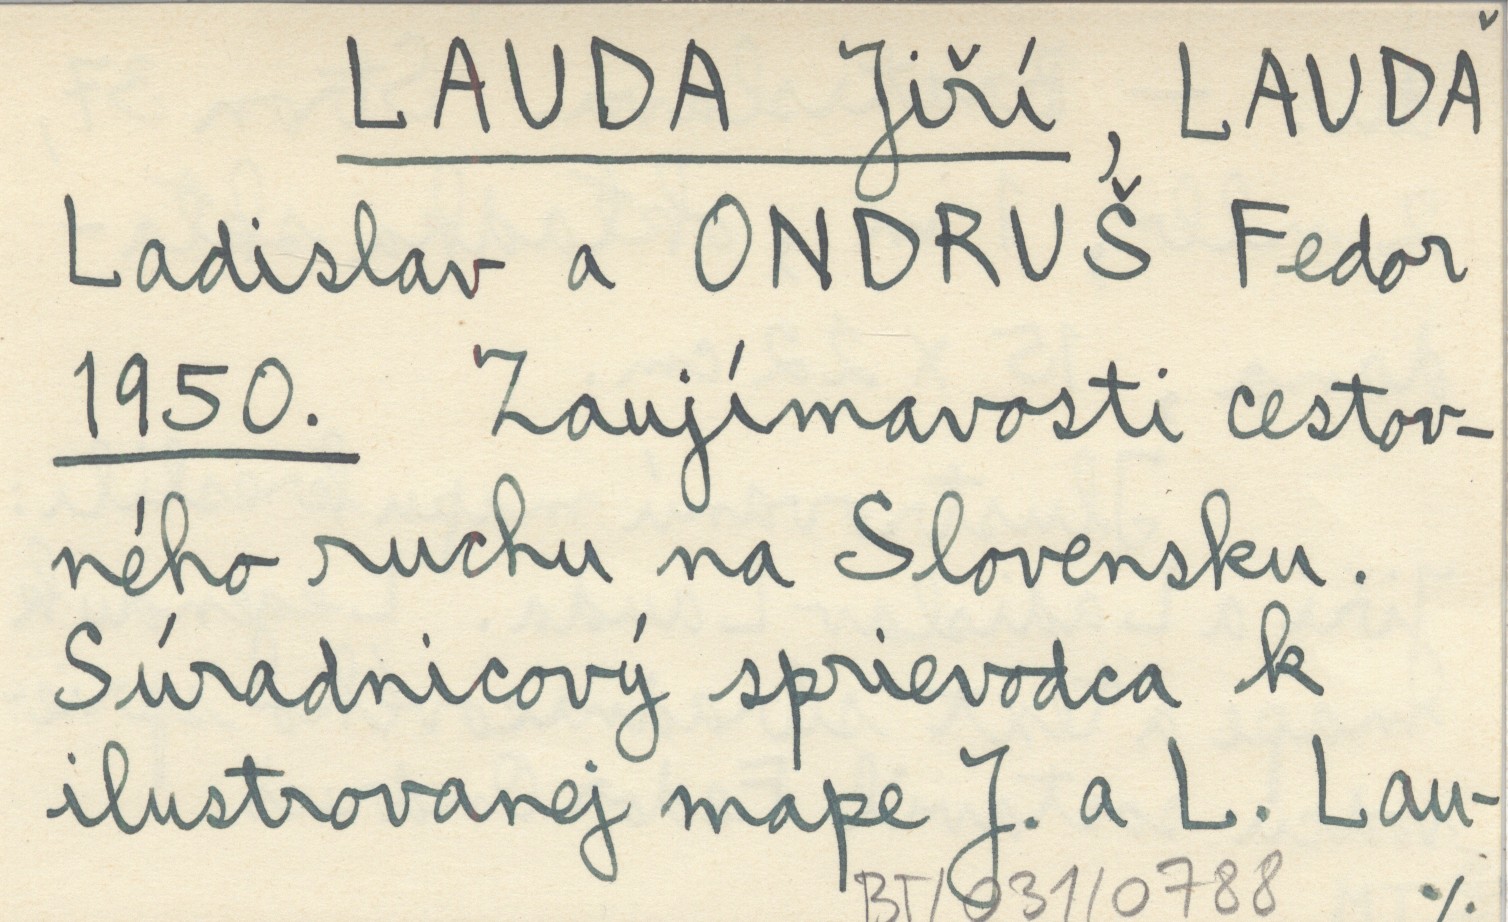 LAUDA Jiří, LAUDA
Ladislav a ONDRUŠ Fedor
1950. Zaujímavosti cestov-
ného ruchu na Slovensku.
Súradnicový sprievodca k
ilustrovanej mape J. a L. Lau-
BT/031/0788 ./.